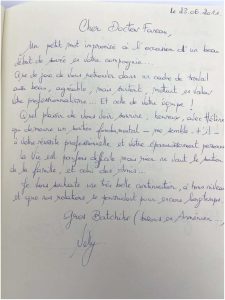 Le 23.06.2010.
Cher Docteur Fareau,
Un petit mot improvisé à l'occasion d'un beau
début de soirée en votre compagnie...
Que de joie de vous retrouver dans un cadre de travail
aussi beau, agréable, mais surtout, mettant en valeur
votre professionnalisme... Et celle de votre équipe !
Quel plaisir de vous savoir heureux, avec Hélène
qui demeure un soutien fondamental - me semble-t'il -
à votre réussite professionnelle, et votre épanouissement
la Vie est parfois difficile mais rien ne vaut le soutien
de la famille, et celui des amis...
Je vous souhaite une très belle continuation, à tous niveaux
et que nos relations se poursuivent pour encore longtemps
Gros Batchiks (bisous en Arménien...)